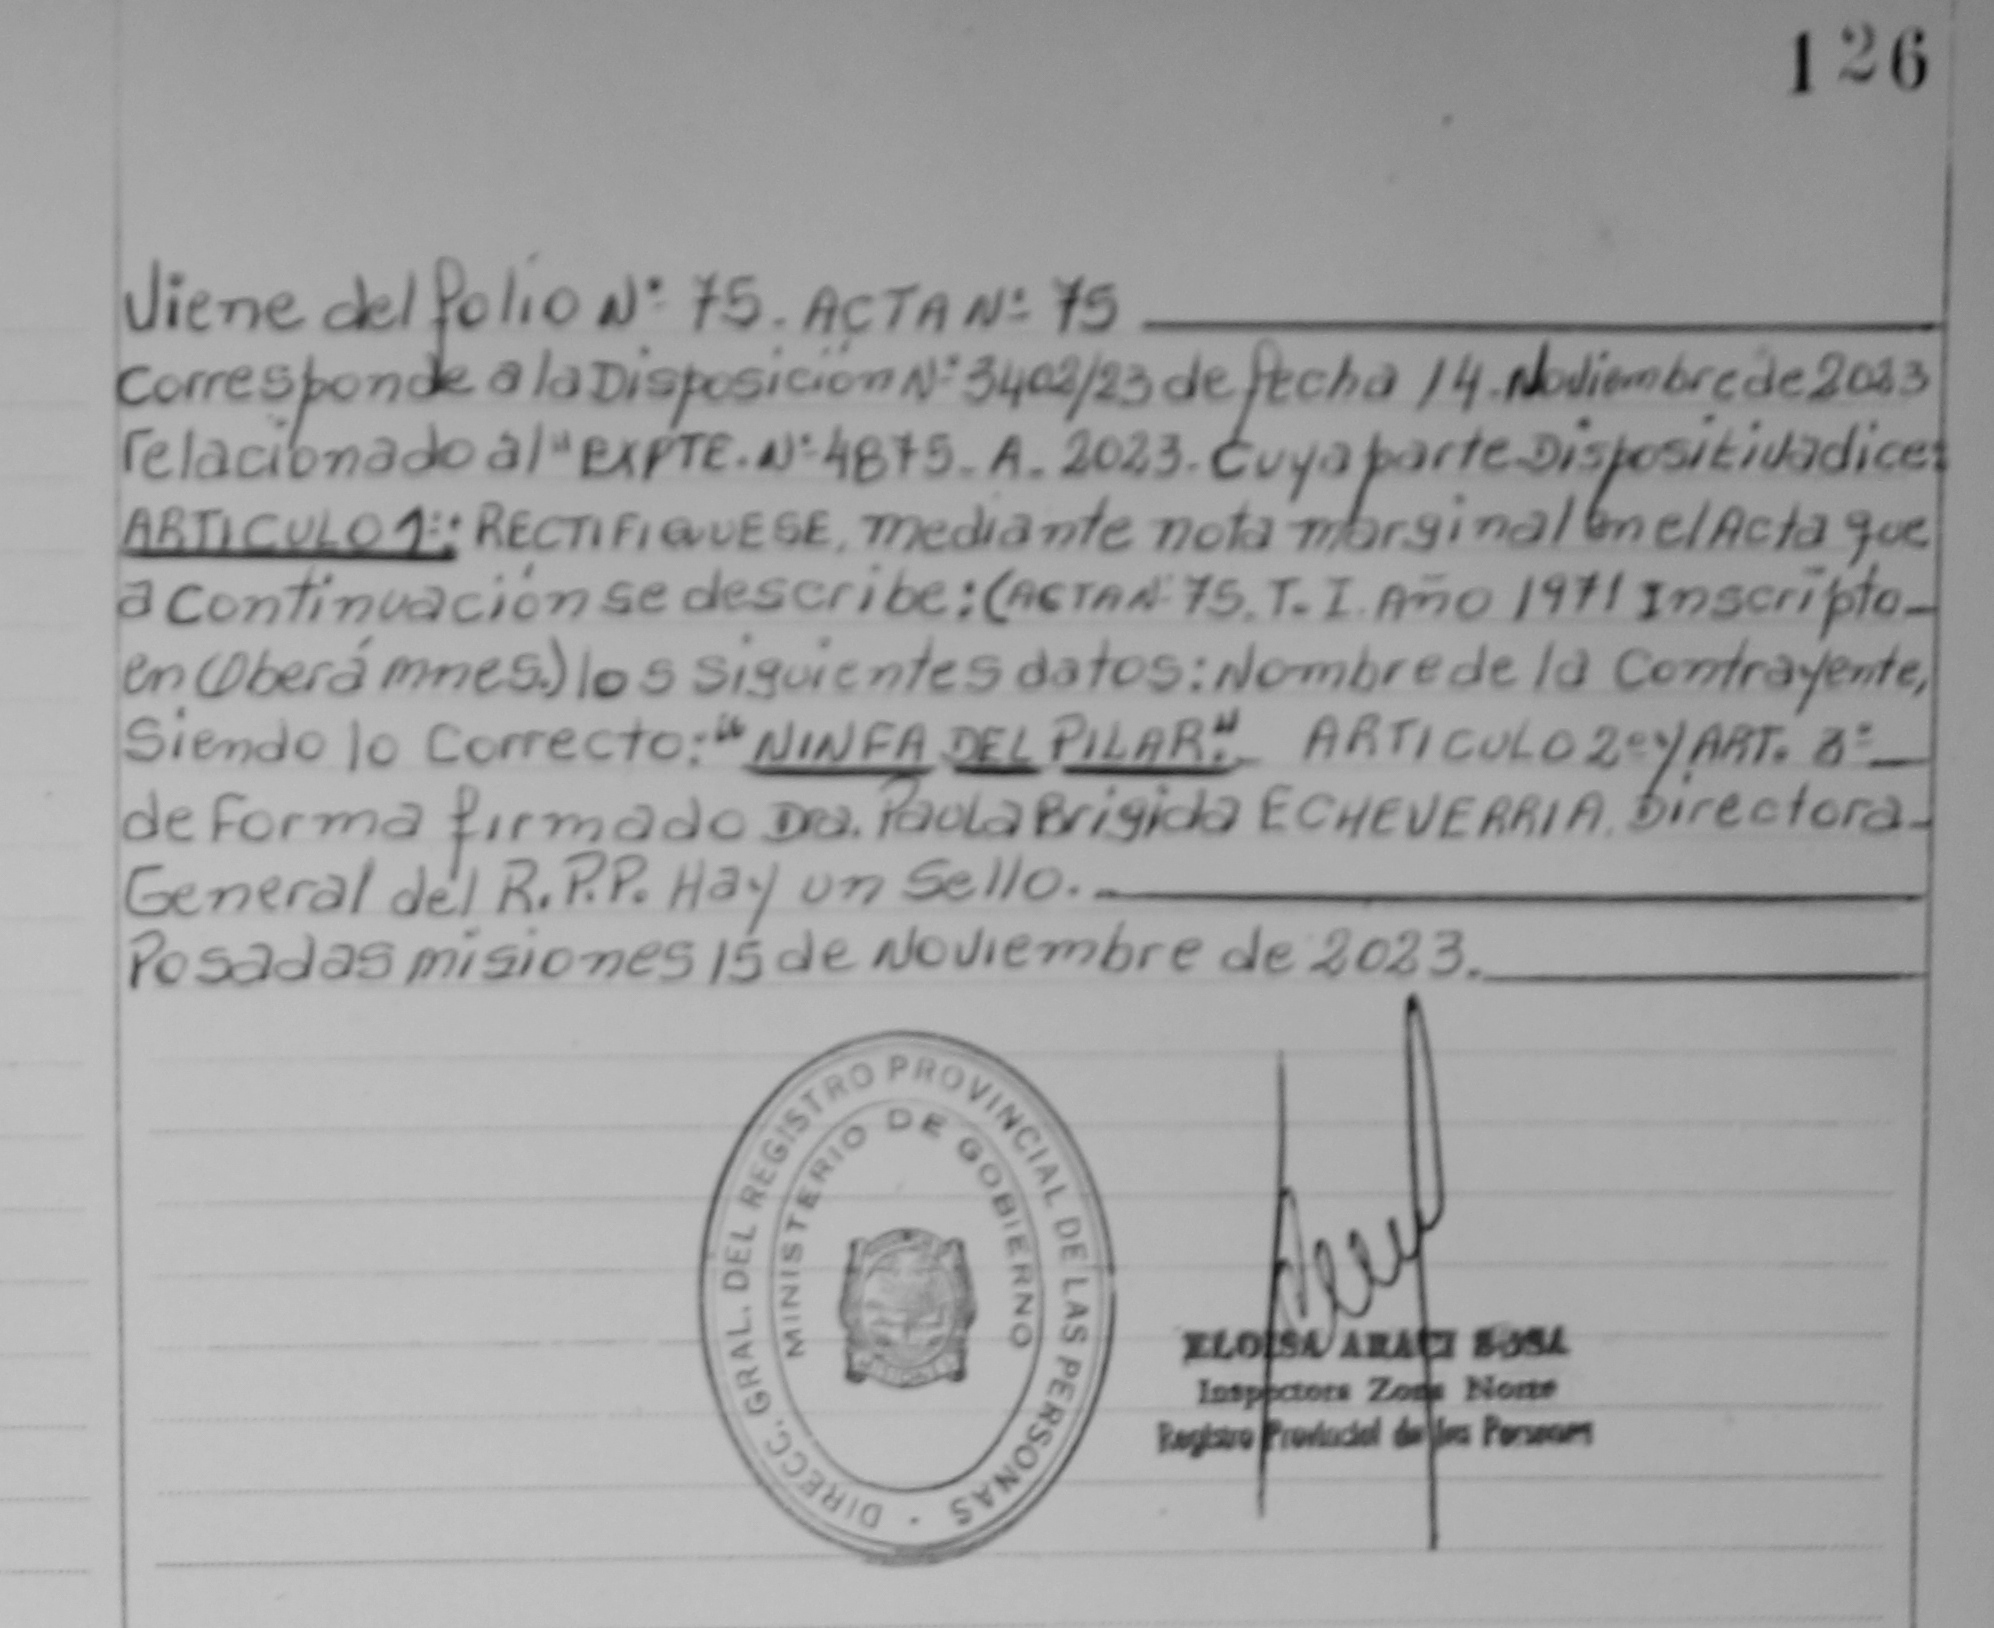 126
Viene del folio N° 75. ACTA N° 75
Corresponde a la Disposición N° 3402/23 de fecha 14. Noviembre de 2023
relacionado al "EXPTE. N° 4875. A. 2023. Cuya parte Dispositiva dice:
ARTICULO 1°: RECTIFIQUESE, mediante nota marginal en el Acta que
a continuación se describe: (ACTA N° 75. T. I. Año 1971 Inscripto
en Oberá mnes.) los siguientes datos: Nombre de la Contrayente,
Siendo lo Correcto: "NINFA DEL PILAR". ARTICULO 2° y ART. 3°
de forma firmado Dra. Paola Brigida ECHEVERRIA. Directora
General del R.P.P. Hay un Sello.
Posadas misiones 15 de Noviembre de 2023.
DIRECC. GRAL. DEL REGISTRO PROVINCIAL DE LAS PERSONAS
MINISTERIO DE GOBIERNO
ELOISA ARACI SOSA
Inspectora Zona Norte
Registro Provincial de las Personas